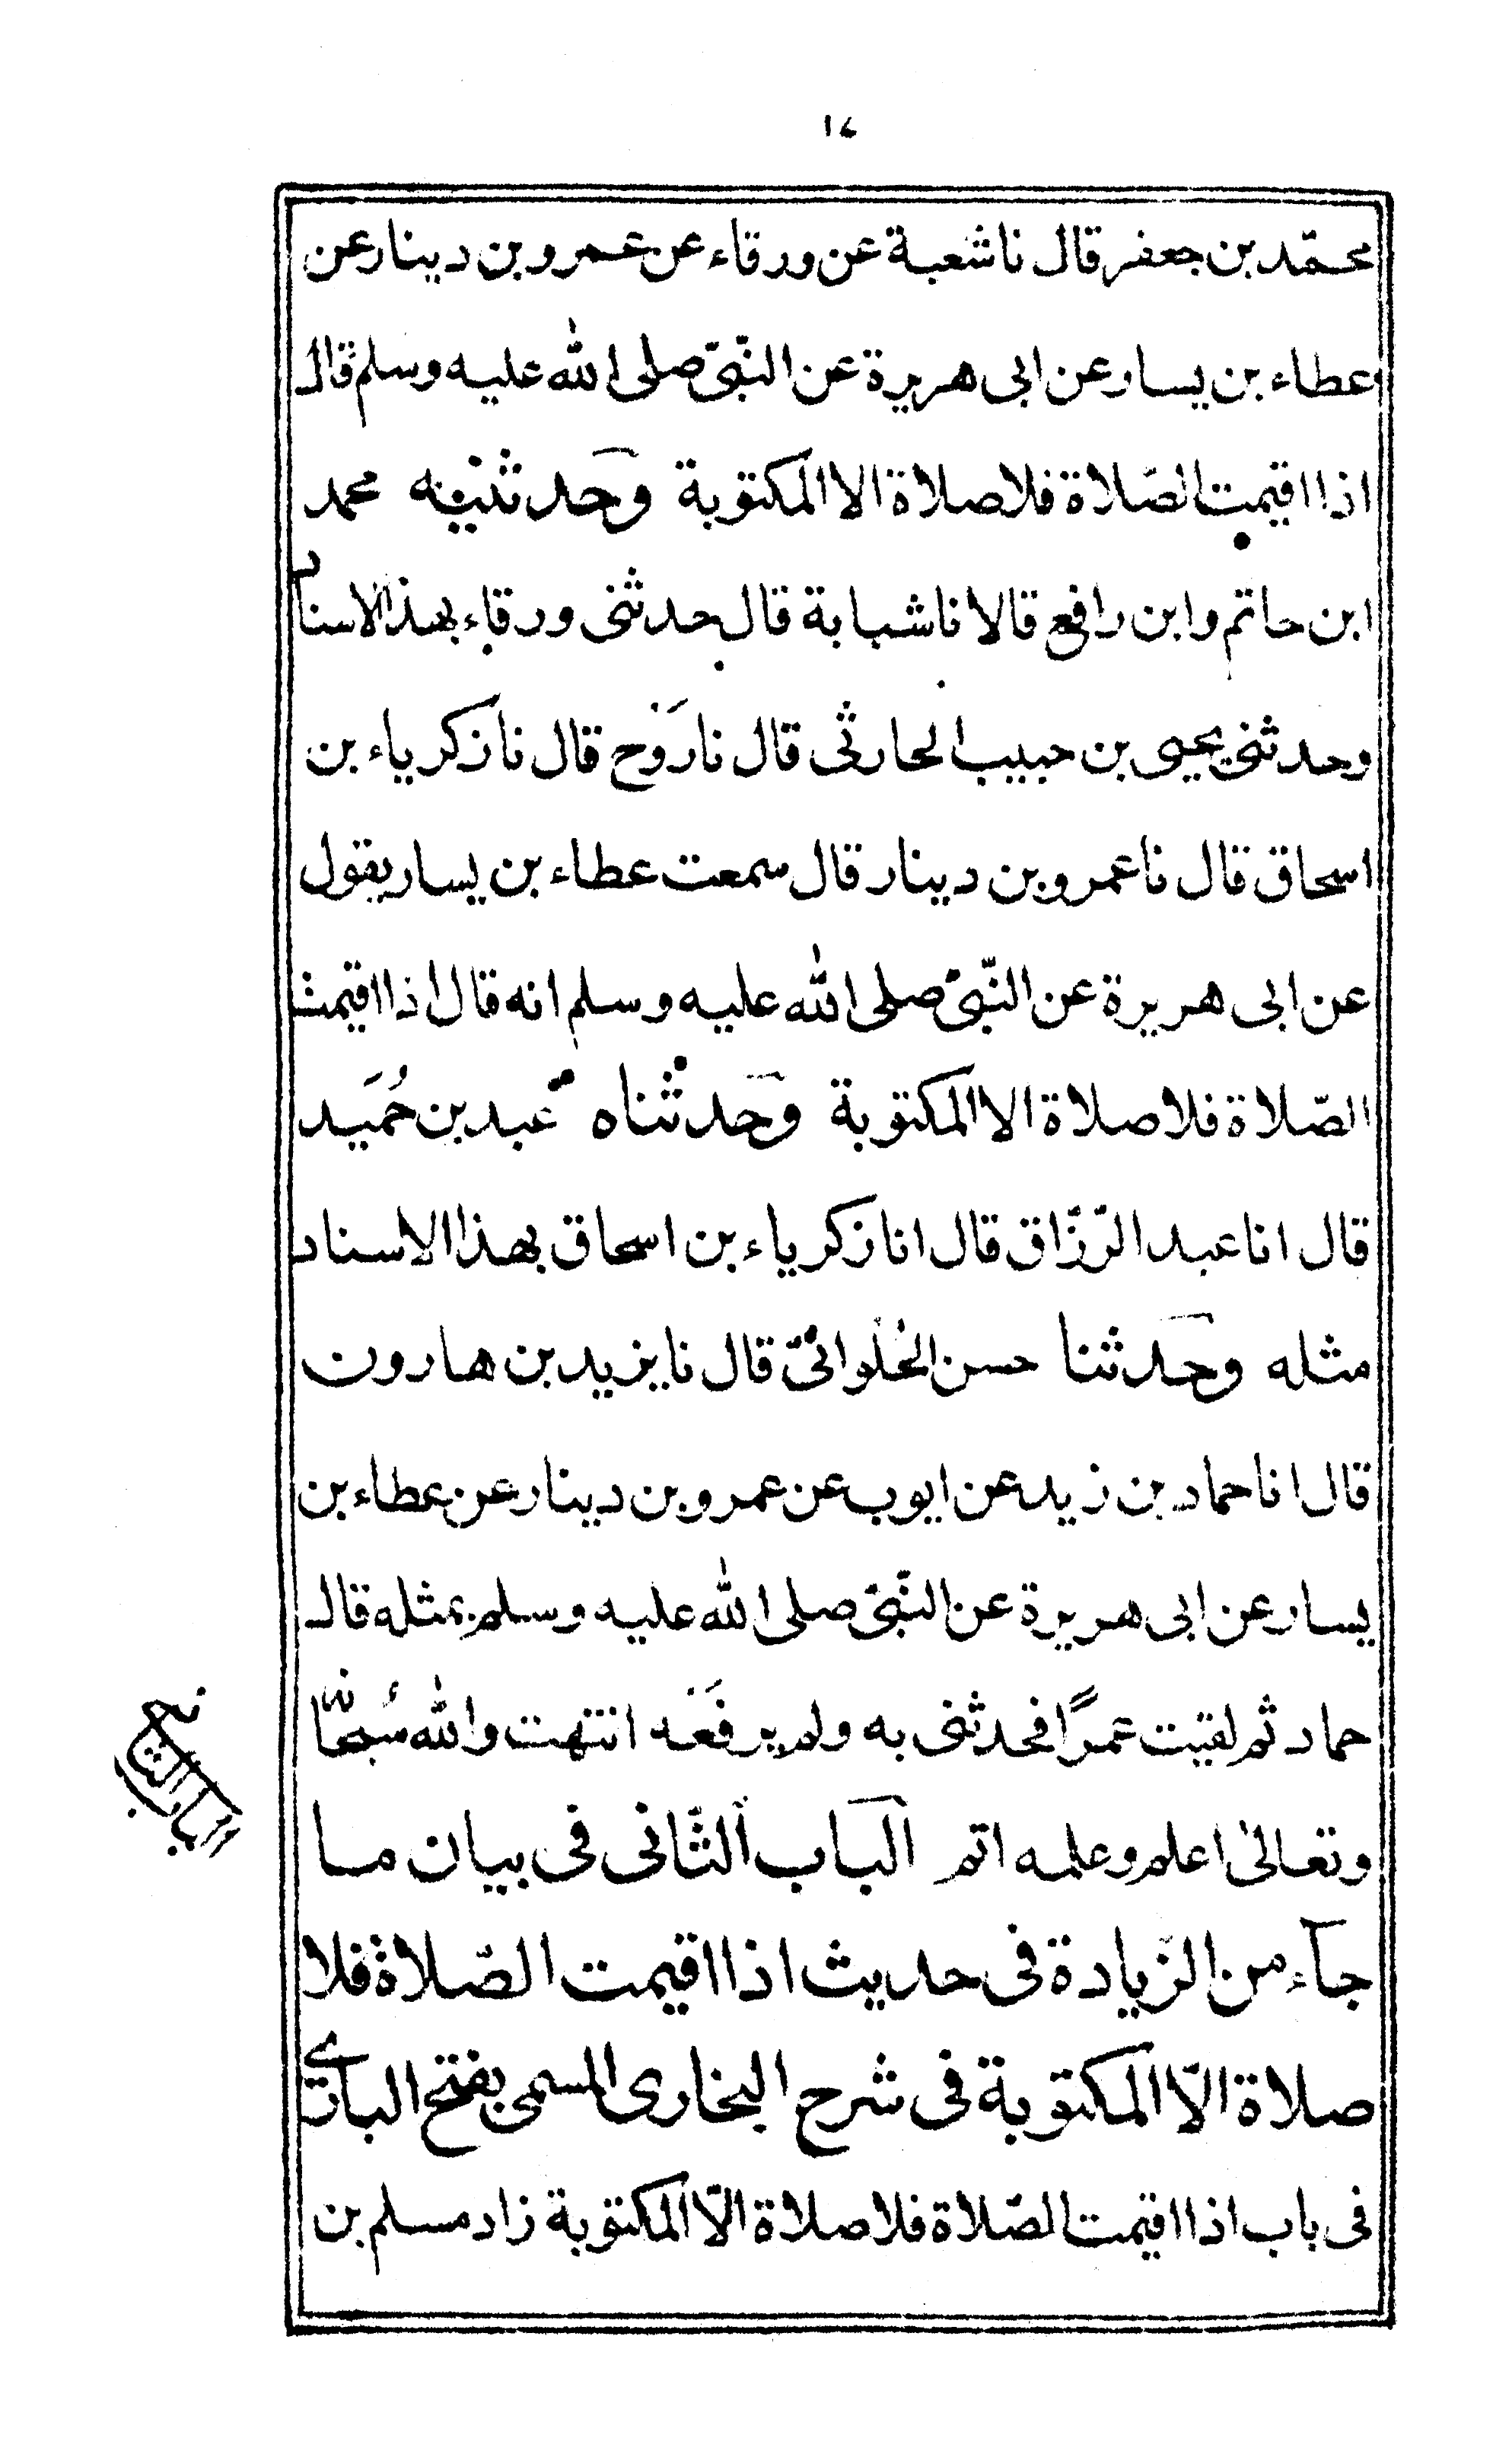 ١٧
محمّد بن جعفر قال نا شعبة عن ورقاء عن عمرو بن دينار عن
عطاء بن يسار عن ابى هريرة عن النّبىّ صلى الله عليه وسلم قال
اذا اقيمت الصّلاة فلا صلاة الا المكتوبة وحدثنيه محمد
ابن حاتم وابن رافع قالا نا شبابة قال حدثنى ورقاء بهذا الاسناد
وحدثنى يحيى بن حبيب الحارثى قال نا رَوْح قال نا زكرياء بن
اسحاق قال نا عمرو بن دينار قال سمعت عطاء بن يسار يقول
عن ابى هريرة عن النّبىّ صلى الله عليه وسلم انه قال اذا اقيمت
الصّلاة فلا صلاة الا المكتوبة وحدثناه عبد بن حُمَيد
قال انا عبد الرّزّاق قال انا زكرياء بن اسحاق بهذا الاسناد
مثله وحدثنا حسن الحُلْوانىّ قال نا يزيد بن هارون
قال انا حماد بن زيد عن ايوب عن عمرو بن دينار عن عطاء بن
يسار عن ابى هريرة عن النّبىّ صلى الله عليه وسلم بمثله قال
حماد ثم لقيت عمرًا فحدثنى به ولم يرفَعْه انتهت والله سُبحانه
وتعالىٰ اعلم وعلمه اتم الباب الثّانى فى بيان ما
جآء من الزّيادة فى حديث اذا اقيمت الصّلاة فلا
صلاة الّا المكتوبة فى شرح البخارى المسمى بفتح البارى
فى باب اذا اقيمت الصّلاة فلا صلاة الّا المكتوبة زاد مسلم بن